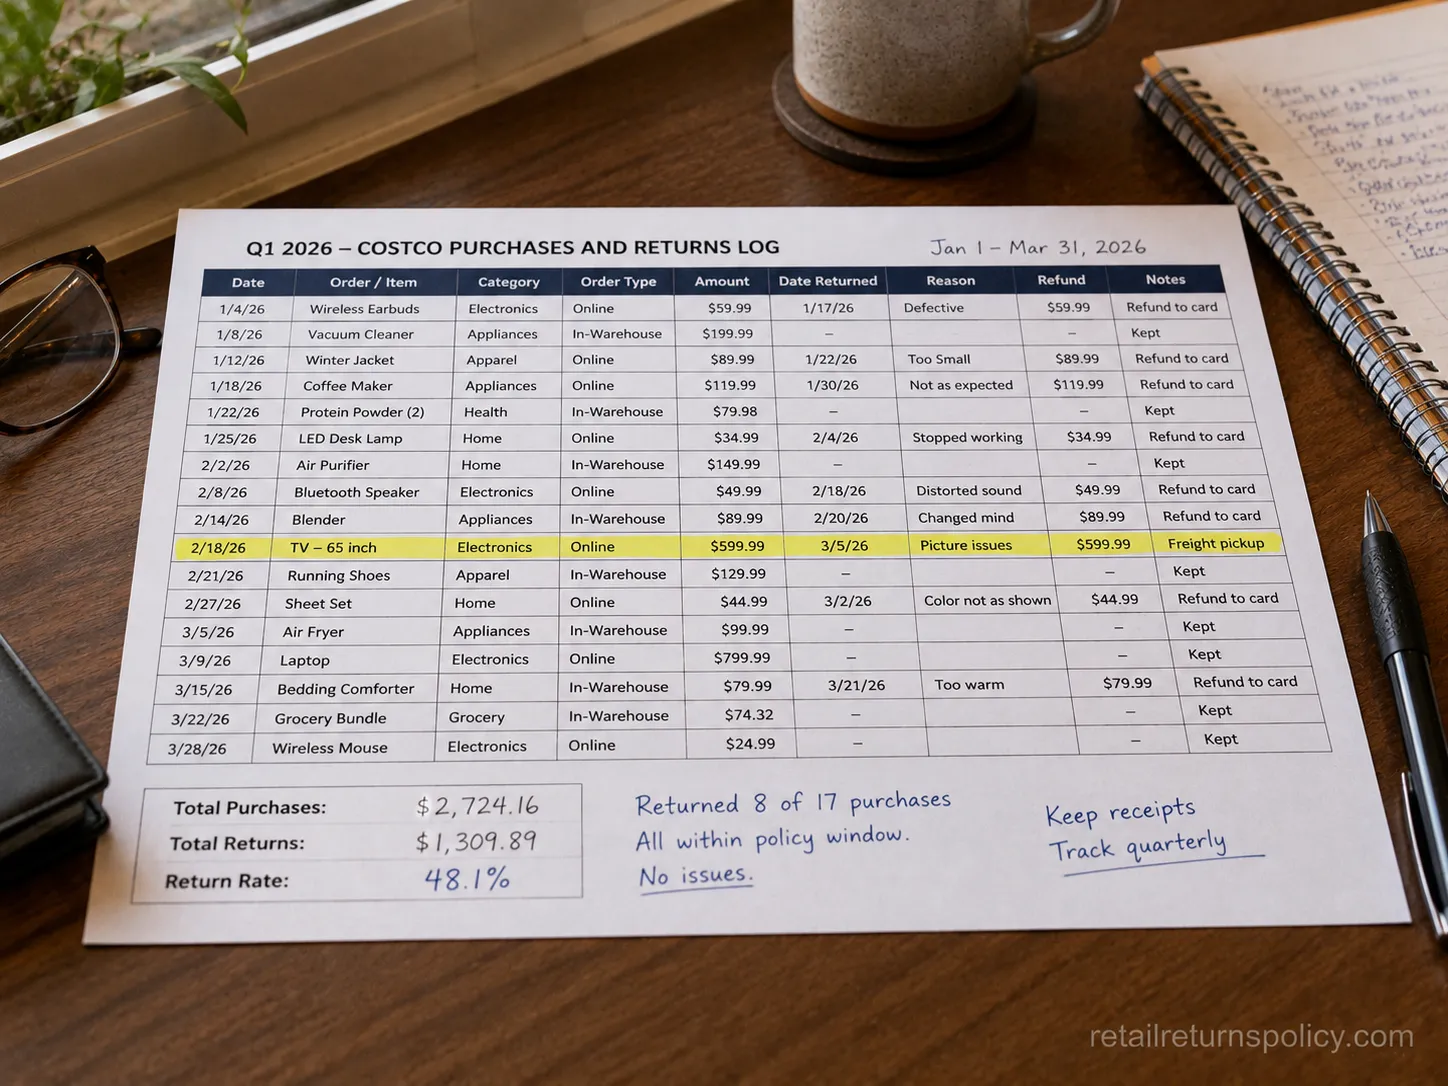 Q1 2026 – COSTCO PURCHASES AND RETURNS LOG Jan 1 – Mar 31, 2026
Date Order / Item Category Order Type Amount Date Returned Reason Refund Notes
1/4/26 Wireless Earbuds Electronics Online $59.99 1/17/26 Defective $59.99 Refund to card
1/8/26 Vacuum Cleaner Appliances In-Warehouse $199.99 – – Kept
1/12/26 Winter Jacket Apparel Online $89.99 1/22/26 Too Small $89.99 Refund to card
1/18/26 Coffee Maker Appliances Online $119.99 1/30/26 Not as expected $119.99 Refund to card
1/22/26 Protein Powder (2) Health In-Warehouse $79.98 – – Kept
1/25/26 LED Desk Lamp Home Online $34.99 2/4/26 Stopped working $34.99 Refund to card
2/2/26 Air Purifier Home In-Warehouse $149.99 – – Kept
2/8/26 Bluetooth Speaker Electronics Online $49.99 2/18/26 Distorted sound $49.99 Refund to card
2/14/26 Blender Appliances In-Warehouse $89.99 2/20/26 Changed mind $89.99 Refund to card
2/18/26 TV – 65 inch Electronics Online $599.99 3/5/26 Picture issues $599.99 Freight pickup
2/21/26 Running Shoes Apparel In-Warehouse $129.99 – – Kept
2/27/26 Sheet Set Home Online $44.99 3/2/26 Color not as shown $44.99 Refund to card
3/5/26 Air Fryer Appliances In-Warehouse $99.99 – – Kept
3/9/26 Laptop Electronics Online $799.99 – – Kept
3/15/26 Bedding Comforter Home In-Warehouse $79.99 3/21/26 Too warm $79.99 Refund to card
3/22/26 Grocery Bundle Grocery In-Warehouse $74.32 – – Kept
3/28/26 Wireless Mouse Electronics Online $24.99 – – Kept
Total Purchases: $2,724.16
Total Returns: $1,309.89
Return Rate: 48.1%
Returned 8 of 17 purchases
All within policy window.
No issues.
Keep receipts
Track quarterly
retailreturnspolicy.com